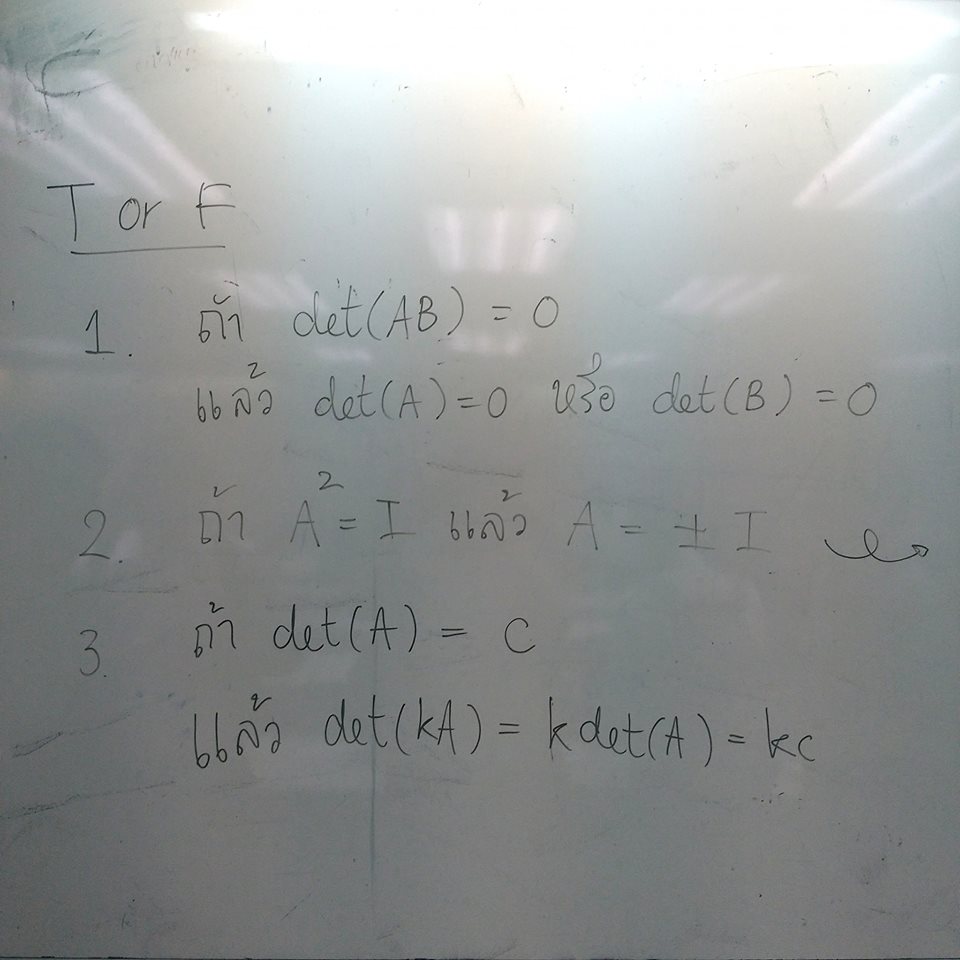 T or F
1. ถ้า det(AB) = 0
แล้ว det(A)=0 หรือ det(B) = 0
2. ถ้า A² = I แล้ว A = ± I
3. ถ้า det(A) = c
แล้ว det(kA) = k det(A) = kc